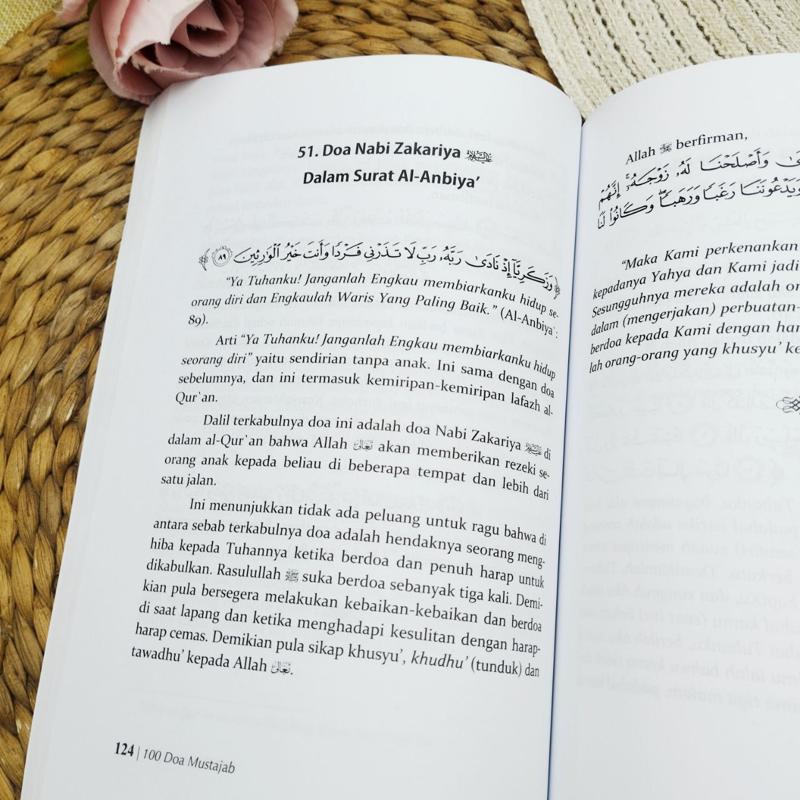 51. Doa Nabi Zakariya عليه السلام
Dalam Surat Al-Anbiya’
﴿ وَزَكَرِيَّآ إِذْ نَادَىٰ رَبَّهُۥ رَبِّ لَا تَذَرْنِى فَرْدًا وَأَنتَ خَيْرُ ٱلْوَٰرِثِينَ ٨٩ ﴾
“Ya Tuhanku! Janganlah Engkau membiarkanku hidup se-
orang diri dan Engkaulah Waris Yang Paling Baik.” (Al-Anbiya`:
89).
Arti “Ya Tuhanku! Janganlah Engkau membiarkanku hidup
seorang diri” yaitu sendirian tanpa anak. Ini sama dengan doa
sebelumnya, dan ini termasuk kemiripan-kemiripan lafazh al-
Qur`an.
Dalil terkabulnya doa ini adalah doa Nabi Zakariya عليه السلام di
dalam al-Qur`an bahwa Allah تعالى akan memberikan rezeki se-
orang anak kepada beliau di beberapa tempat dan lebih dari
satu jalan.
Ini menunjukkan tidak ada peluang untuk ragu bahwa di
antara sebab terkabulnya doa adalah hendaknya seorang meng-
hiba kepada Tuhannya ketika berdoa dan penuh harap untuk
dikabulkan. Rasulullah ﷺ suka berdoa sebanyak tiga kali. Demi-
kian pula bersegera melakukan kebaikan-kebaikan dan berdoa
di saat lapang dan ketika menghadapi kesulitan dengan harap-
harap cemas. Demikian pula sikap khusyu’, khudhu’ (tunduk) dan
tawadhu’ kepada Allah تعالى.
124 | 100 Doa Mustajab
Allah berfirman,
وَأَصْلَحْنَا لَهُۥ زَوْجَهُۥٓ ۚ إِنَّهُمْ
وَيَدْعُونَنَا رَغَبًا وَرَهَبًا ۖ وَكَانُوا۟ لَنَا
“Maka Kami perkenankan
kepadanya Yahya dan Kami jadi
Sesungguhnya mereka adalah or
dalam (mengerjakan) perbuatan-
berdoa kepada Kami dengan har
lah orang-orang yang khusyu’ ke